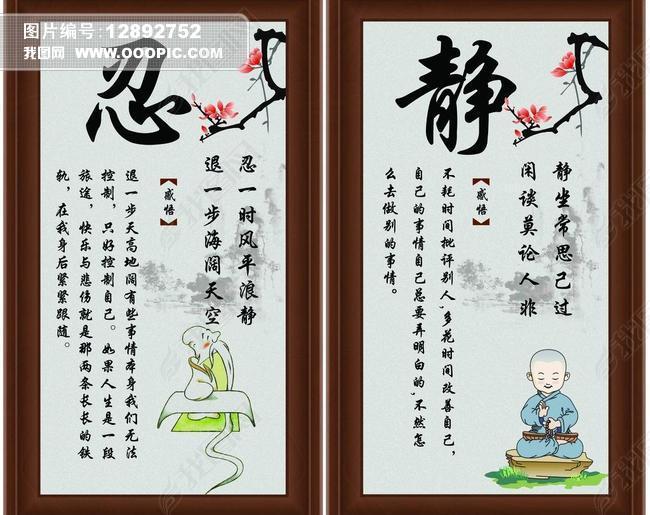 图片编号:12892752
我图网 WWW.OOOPIC.COM
忍
忍一时风平浪静
退一步海阔天空
【感悟】
退一步天高地阔有些事情本身我们无法
控制，只好控制自己。如果人生是一段
旅途，快乐与悲伤就是那两条长长的铁
轨，在我身后紧紧跟随。
静
静坐常思己过
闲谈莫论人非
【感悟】
不耗时间批评别人,多花时间改善自己,
自己的事情自己总要弄明白的,不然怎
么去做别的事情。